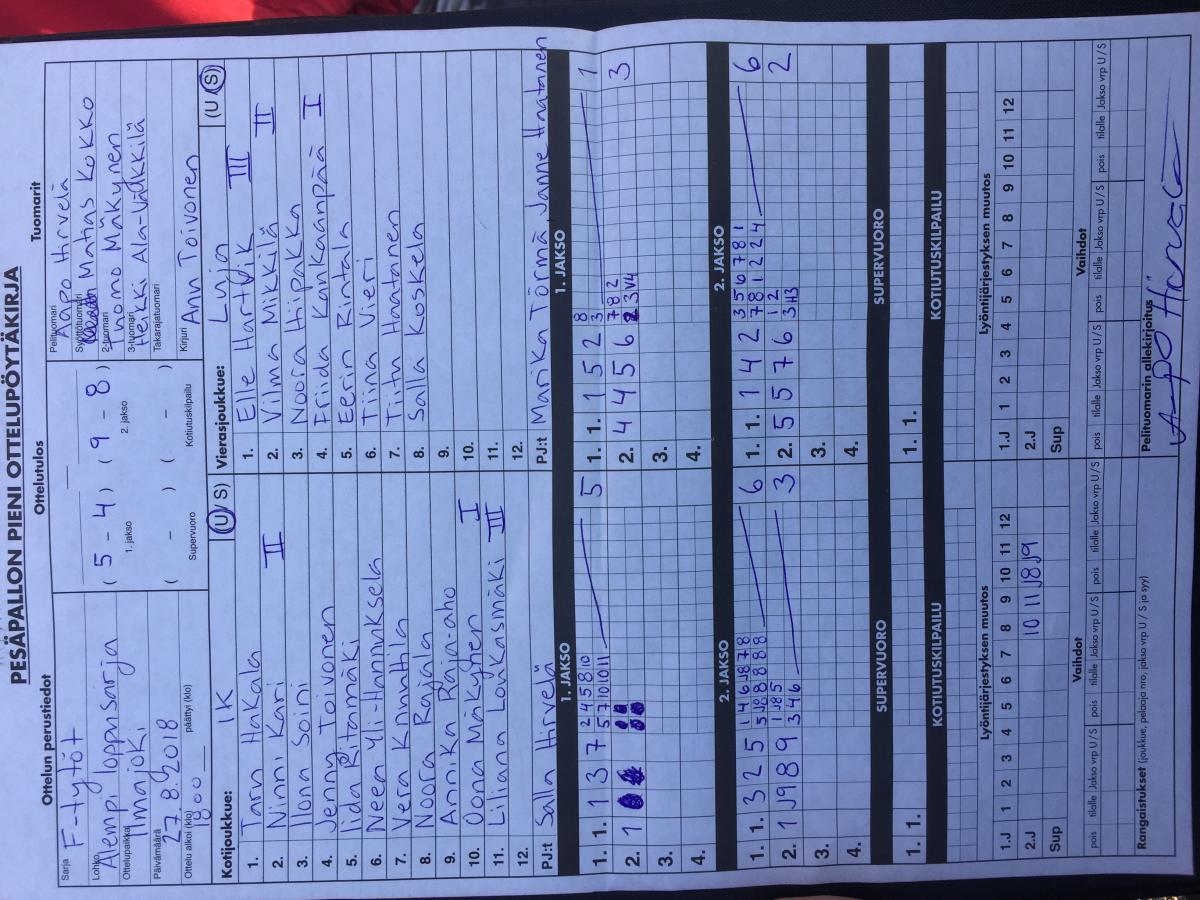 PESÄPALLON PIENI OTTELUPÖYTÄKIRJA
Ottelun perustiedot
Sarja F-tytöt
Lohko Alempi loppusarja
Ottelupaikka Ilmajoki
Päivämäärä 27.8.2018
Ottelu alkoi (klo) 18.00 päättyi (klo)
Ottelutulos
( 5 - 4 ) ( 9 - 8 )
1. jakso 2. jakso
( - ) ( - )
Supervuoro Kotiutuskilpailu
Tuomarit
Pelituomari Aapo Hirvelä
Syöttötuomari Matias Kokko
2-tuomari Tuomo Mäkynen
3-tuomari Heikki Ala-Välkkilä
Takarajatuomari
Kirjuri Anu Toivonen
Kotijoukkue: IK (U / S)
1. Taru Hakala
2. Ninni Kari II
3. Ilona Soini
4. Jenny Toivonen
5. Iida Ritamäki
6. Neea Yli-Hannuksela
7. Vera Knuutila
8. Noora Rajala
9. Annika Raja-aho
10. Oona Mäkynen I
11. Liliana Loukasmäki III
12.
PJ:t Salla Hirvelä
Vierasjoukkue: Luja (U / S)
1. Elle Hartvik III
2. Vilma Mikkilä II
3. Noora Hiipakka
4. Friida Kankaanpää I
5. Eerin Rintala
6. Tiina Vieri
7. Tiitu Haatanen
8. Salla Koskela
9.
10.
11.
12.
PJ:t Marika Törmä, Janne Haatanen
1. JAKSO
1. 1. 1 3 7 2 4 5 8 10 5
5 7 10 10 11
2. 1
3.
4.
1. JAKSO
1. 1. 1 5 2 8 1
3
2. 4 4 5 6 7 8 2 3
3 V4
3.
4.
2. JAKSO
1. 1. 3 2 5 1 4 6 J8 7 8 6
5 J8 8 8 8 8
2. 1 J9 8 9 1 J8 5 3
3 4 6
3.
4.
2. JAKSO
1. 1. 1 4 2 3 5 6 7 8 1 6
7 8 1 2 2 4
2. 5 5 7 6 1 2 2
3 H3
3.
4.
SUPERVUORO
1. 1.
SUPERVUORO
1. 1.
KOTIUTUSKILPAILU
KOTIUTUSKILPAILU
Lyöntijärjestyksen muutos
1.J 1 2 3 4 5 6 7 8 9 10 11 12
2.J 10 11 J8 J9
Sup
Lyöntijärjestyksen muutos
1.J 1 2 3 4 5 6 7 8 9 10 11 12
2.J
Sup
Vaihdot
pois tilalle Jakso vrp U / S pois tilalle Jakso vrp U / S pois tilalle Jakso vrp U / S
Vaihdot
pois tilalle Jakso vrp U / S pois tilalle Jakso vrp U / S pois tilalle Jakso vrp U / S
Rangaistukset (joukkue, pelaaja nro, jakso vrp U / S ja syy)
Pelituomarin allekirjoitus
Aapo Hirvelä